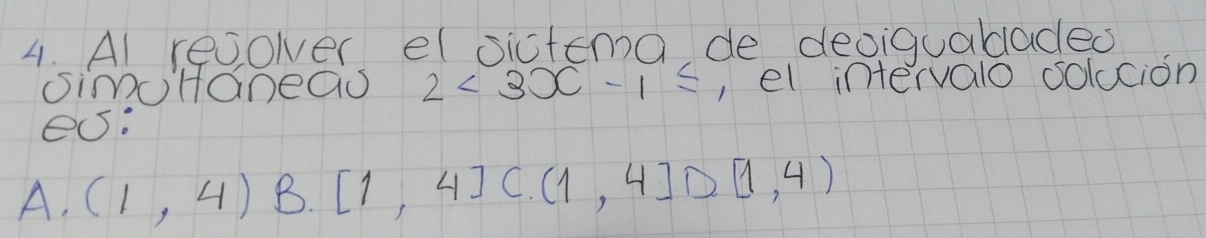 4. Al resolver el sistema de desigualdades
simultáneas 2 < 3x - 1 ≤, el intervalo solución
es:
A. (1, 4) B. [1, 4] C. (1, 4] D [1, 4)